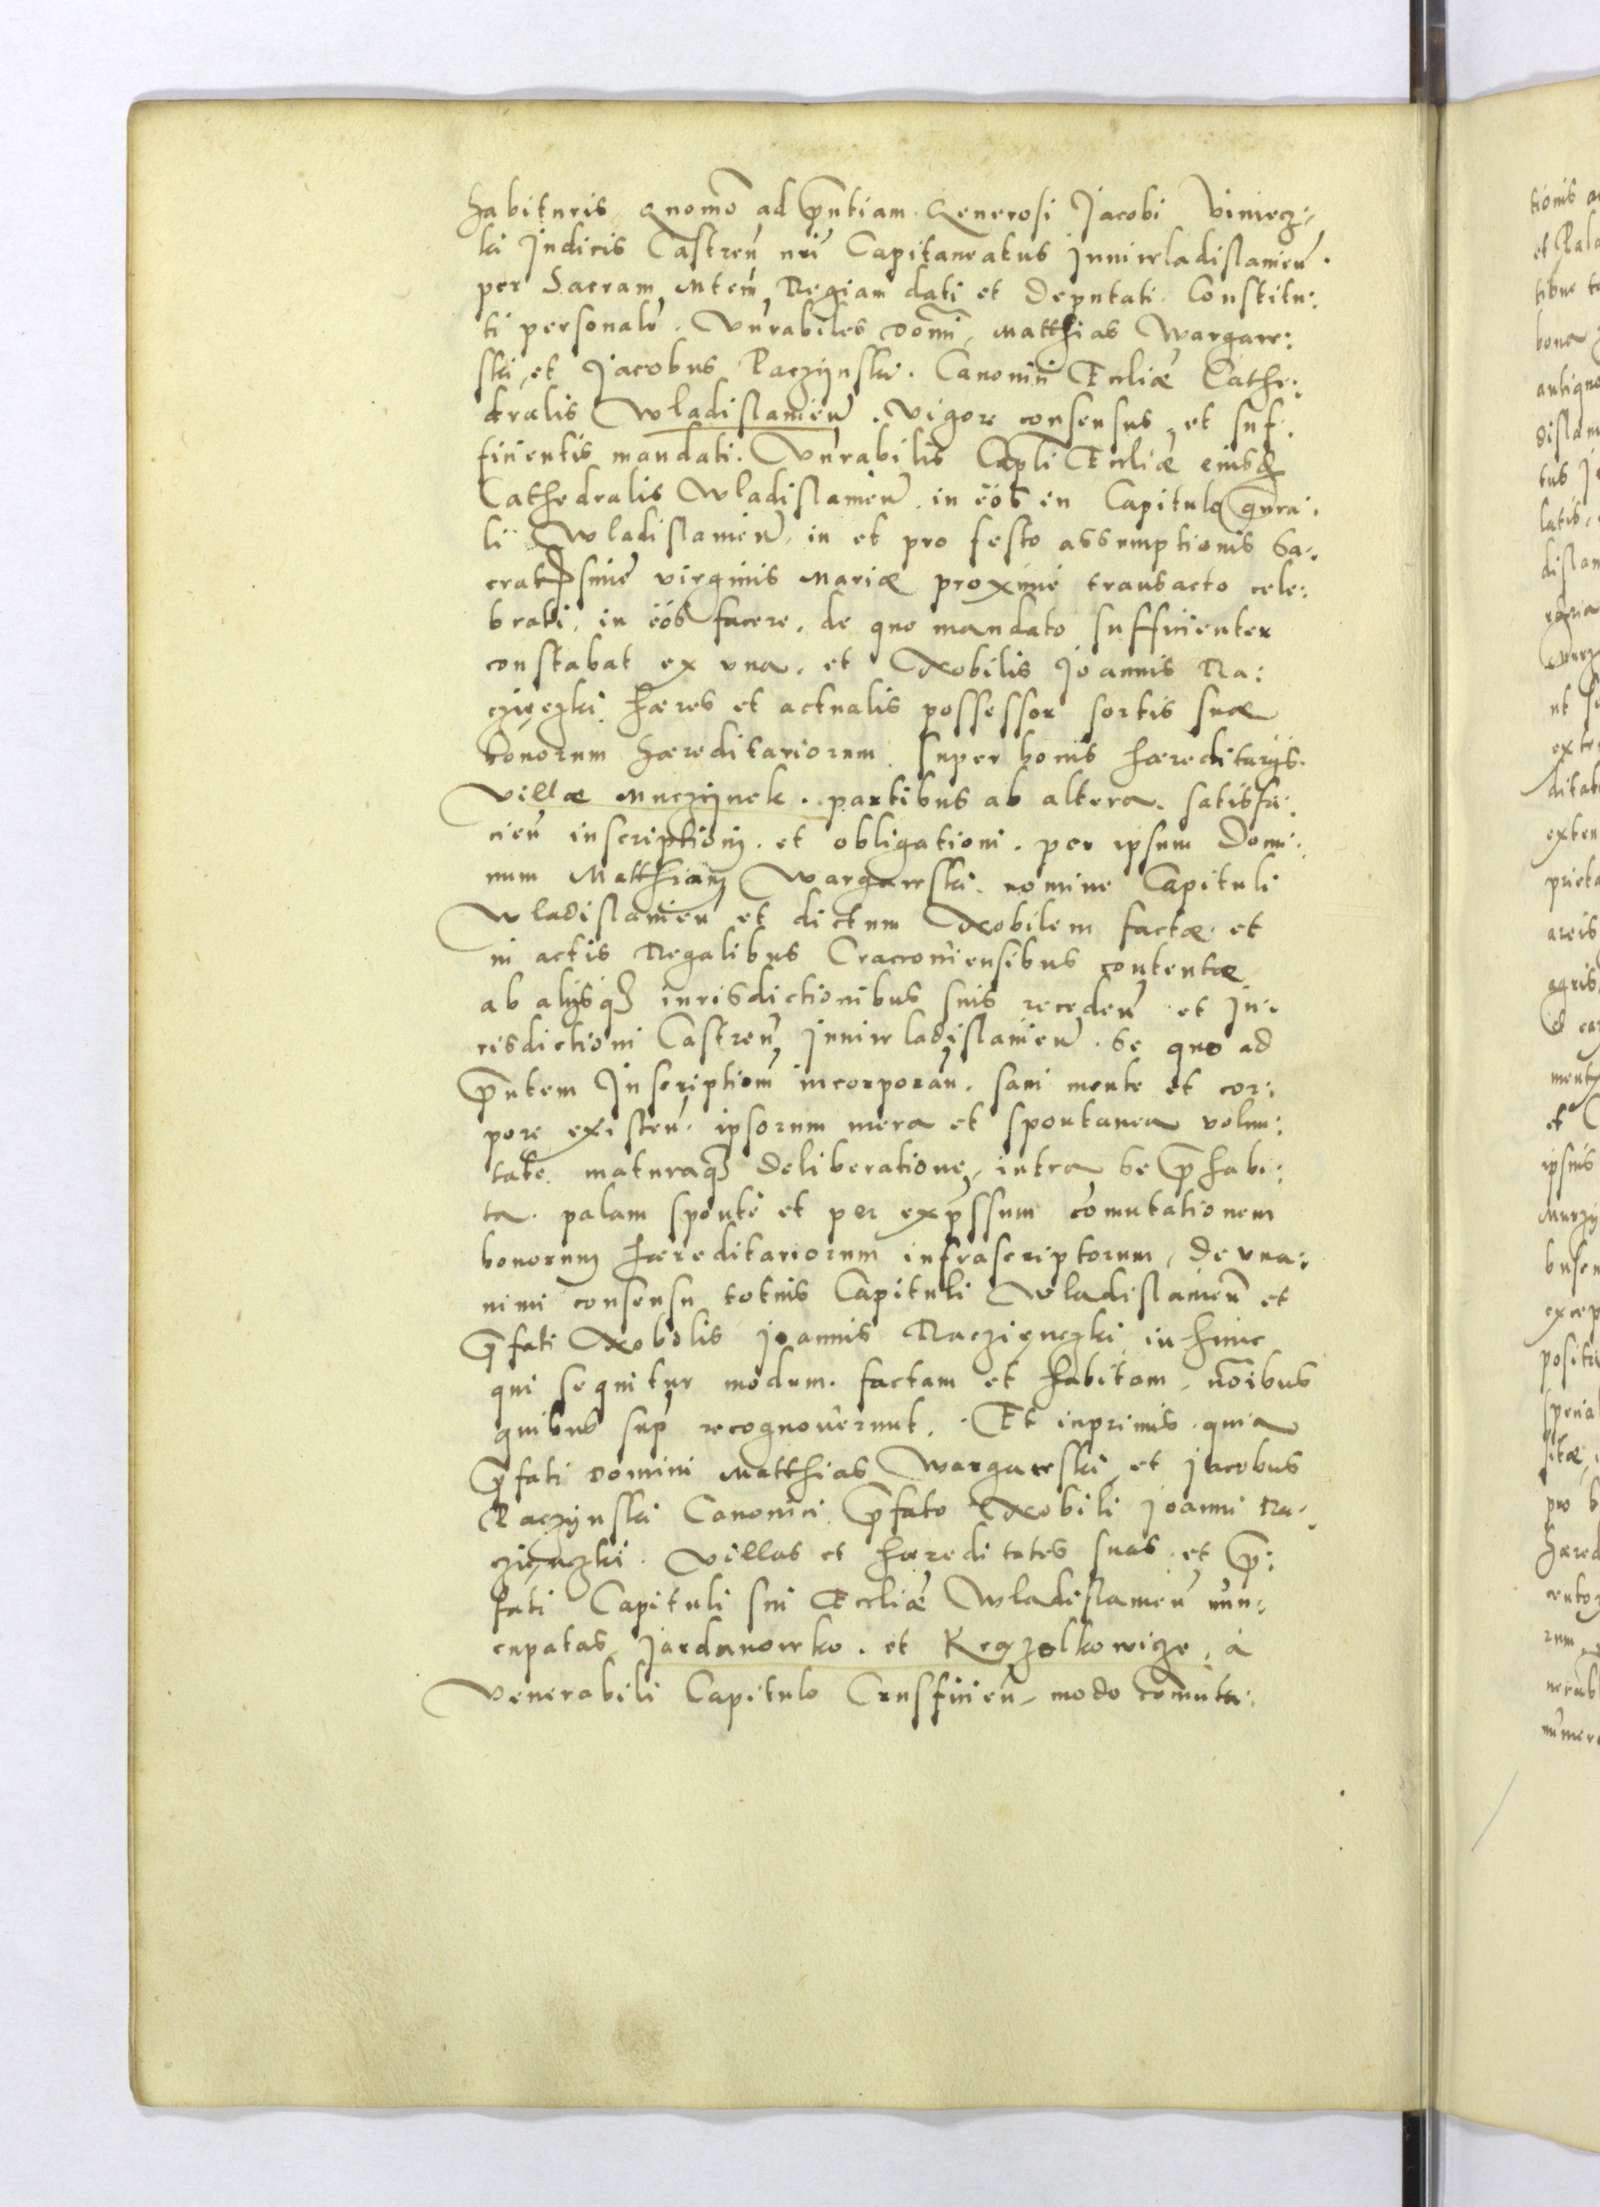 habituris, quomo ad pntiam Generosi Jacobi Viniecz:
ki Judicis Castren nri Capitaneatus Juniwladislauien
per Sacram Mtem Regiam dati et Deputati. Constitu:
ti personalr. Vnrabiles Domi, Matthias Wargaw:
ski, et Jacobus Raczÿnski. Canonici Ecclïæ Cathe:
dralis Wladislauien. vigore consensus, et suf:
ficientis mandati. Vnrabilis Capli Ecclïæ eiusd
Cathedralis Wladislauien. in eos en Capitulo gnra:
li Wladislauien. in et pro festo assumptionis Sa:
cratissime virginis Mariæ proxime transacto cele:
brati, in eos facere, de quo mandato sufficienter
constabat ex vna, et Nobilis Joannis Ra:
czięczki, hæres et actualis possessor sortis suæ
bonorum hæreditariorum, super bonis hæreditarijs
villæ Muczÿnek. partibus ab altera. satisfa:
cien inscriptioni. et obligationi. per ipsum Domi:
num Matthiam Wargawski. nomine Capituli
Wladislauien et dictum Nobilem factæ. et
in actis Regalibus Cracouiensibus contentæ
ab alijsq iurisdictionibus suis receden et Ju:
risdictioni Castren Juniwladislauien. se quo ad
pntem Inscriptiom incorporan. sani mente et cor:
pore existen. ipsorum mera et spontanea volun:
tate. maturaq Deliberatione, intra se phabi:
ta. palam sponte et per expssum comutationem
bonorum hæreditariorum infrascriptorum, De vna:
nimi consensu totius Capituli Wladislauien et
pfati Nobilis Joannis Raczięnczki, in hunc
qui sequitur modum. factam et habitam, noibus
quibus sup recognouerunt. Et inprimis. quia
pfati Domini Matthias Wargawski, et Jacobus
Raczÿnski Canonici pfato Nobili Joanni Ra:
czięnczki. villas et hæreditates suas. et p:
fati Capituli sui Ecclïæ Wladislauien nun:
cupatas Jardanowko. et Krczolkowicze, à
Venerabili Capitulo Crusficien, modo comuta: